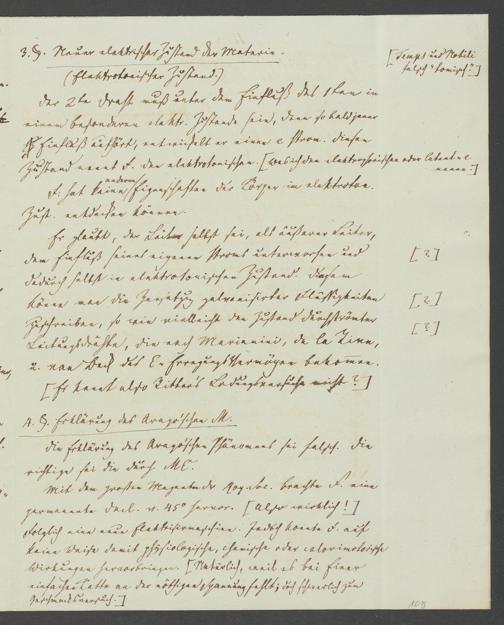 3. §. Neuer elektrischer Zustand der Materie.
(Elektrotonischer Zustand.)
[Temps und Nobili
falsch "tonisch"?]
Der 2te Draht muß unter dem Einfluß des 1ten in
einem besonderen elektr. Zustande sein, denn sobald jener
Einfluß aufhört, entwickelt er einen e Strom. Diesen
Zustand nennt F. den elektrotonischen. [Welch den elektrischen oder latent e
nenne.]
F. hat keine anderen Eigenschaften der Körper im elektroton.
Zust. entdecken können.
Er glaubt, der Leiter selbst sei, als äußerer Leiter,
dem Einfluß seines eigenen Stroms unterworfen und
dadurch selbst in elektrotonischem Zustand. Diesem
[?]
könne man die Zersetzg galvanisirter Flüssigkeiten
[?]
zuschreiben, so wie vielleicht den Zustand durchströmter
[?]
Leitungsdrähte, die nach Marianini, de la Rive,
u. van Beek das E-Erregungsvermögen bekommen.
[Er kennt also Ritter's Ladungsversuche nicht?]
4. §. Erklärung des Arago'schen M.
Die Erklärung des Arago'schen Phänomens sei falsch. Die
richtige sei die durch ME.
Mit dem großen Magnete der Roy. Soc. brachte F. eine
permanente Decl. v. 45° hervor. [Also wirklich!]
Folglich eine neue Elektrisirmaschine. Jedoch konnte F. auf
keine Weise damit physiologische, chemische oder calorimotorische
Wirkungen hervorbringen. [Natürlich, weil es bei einer
einfachen Kette an der nöthigen Spannung fehlt; doch schwerlich zum
Geschmacksversuch.]